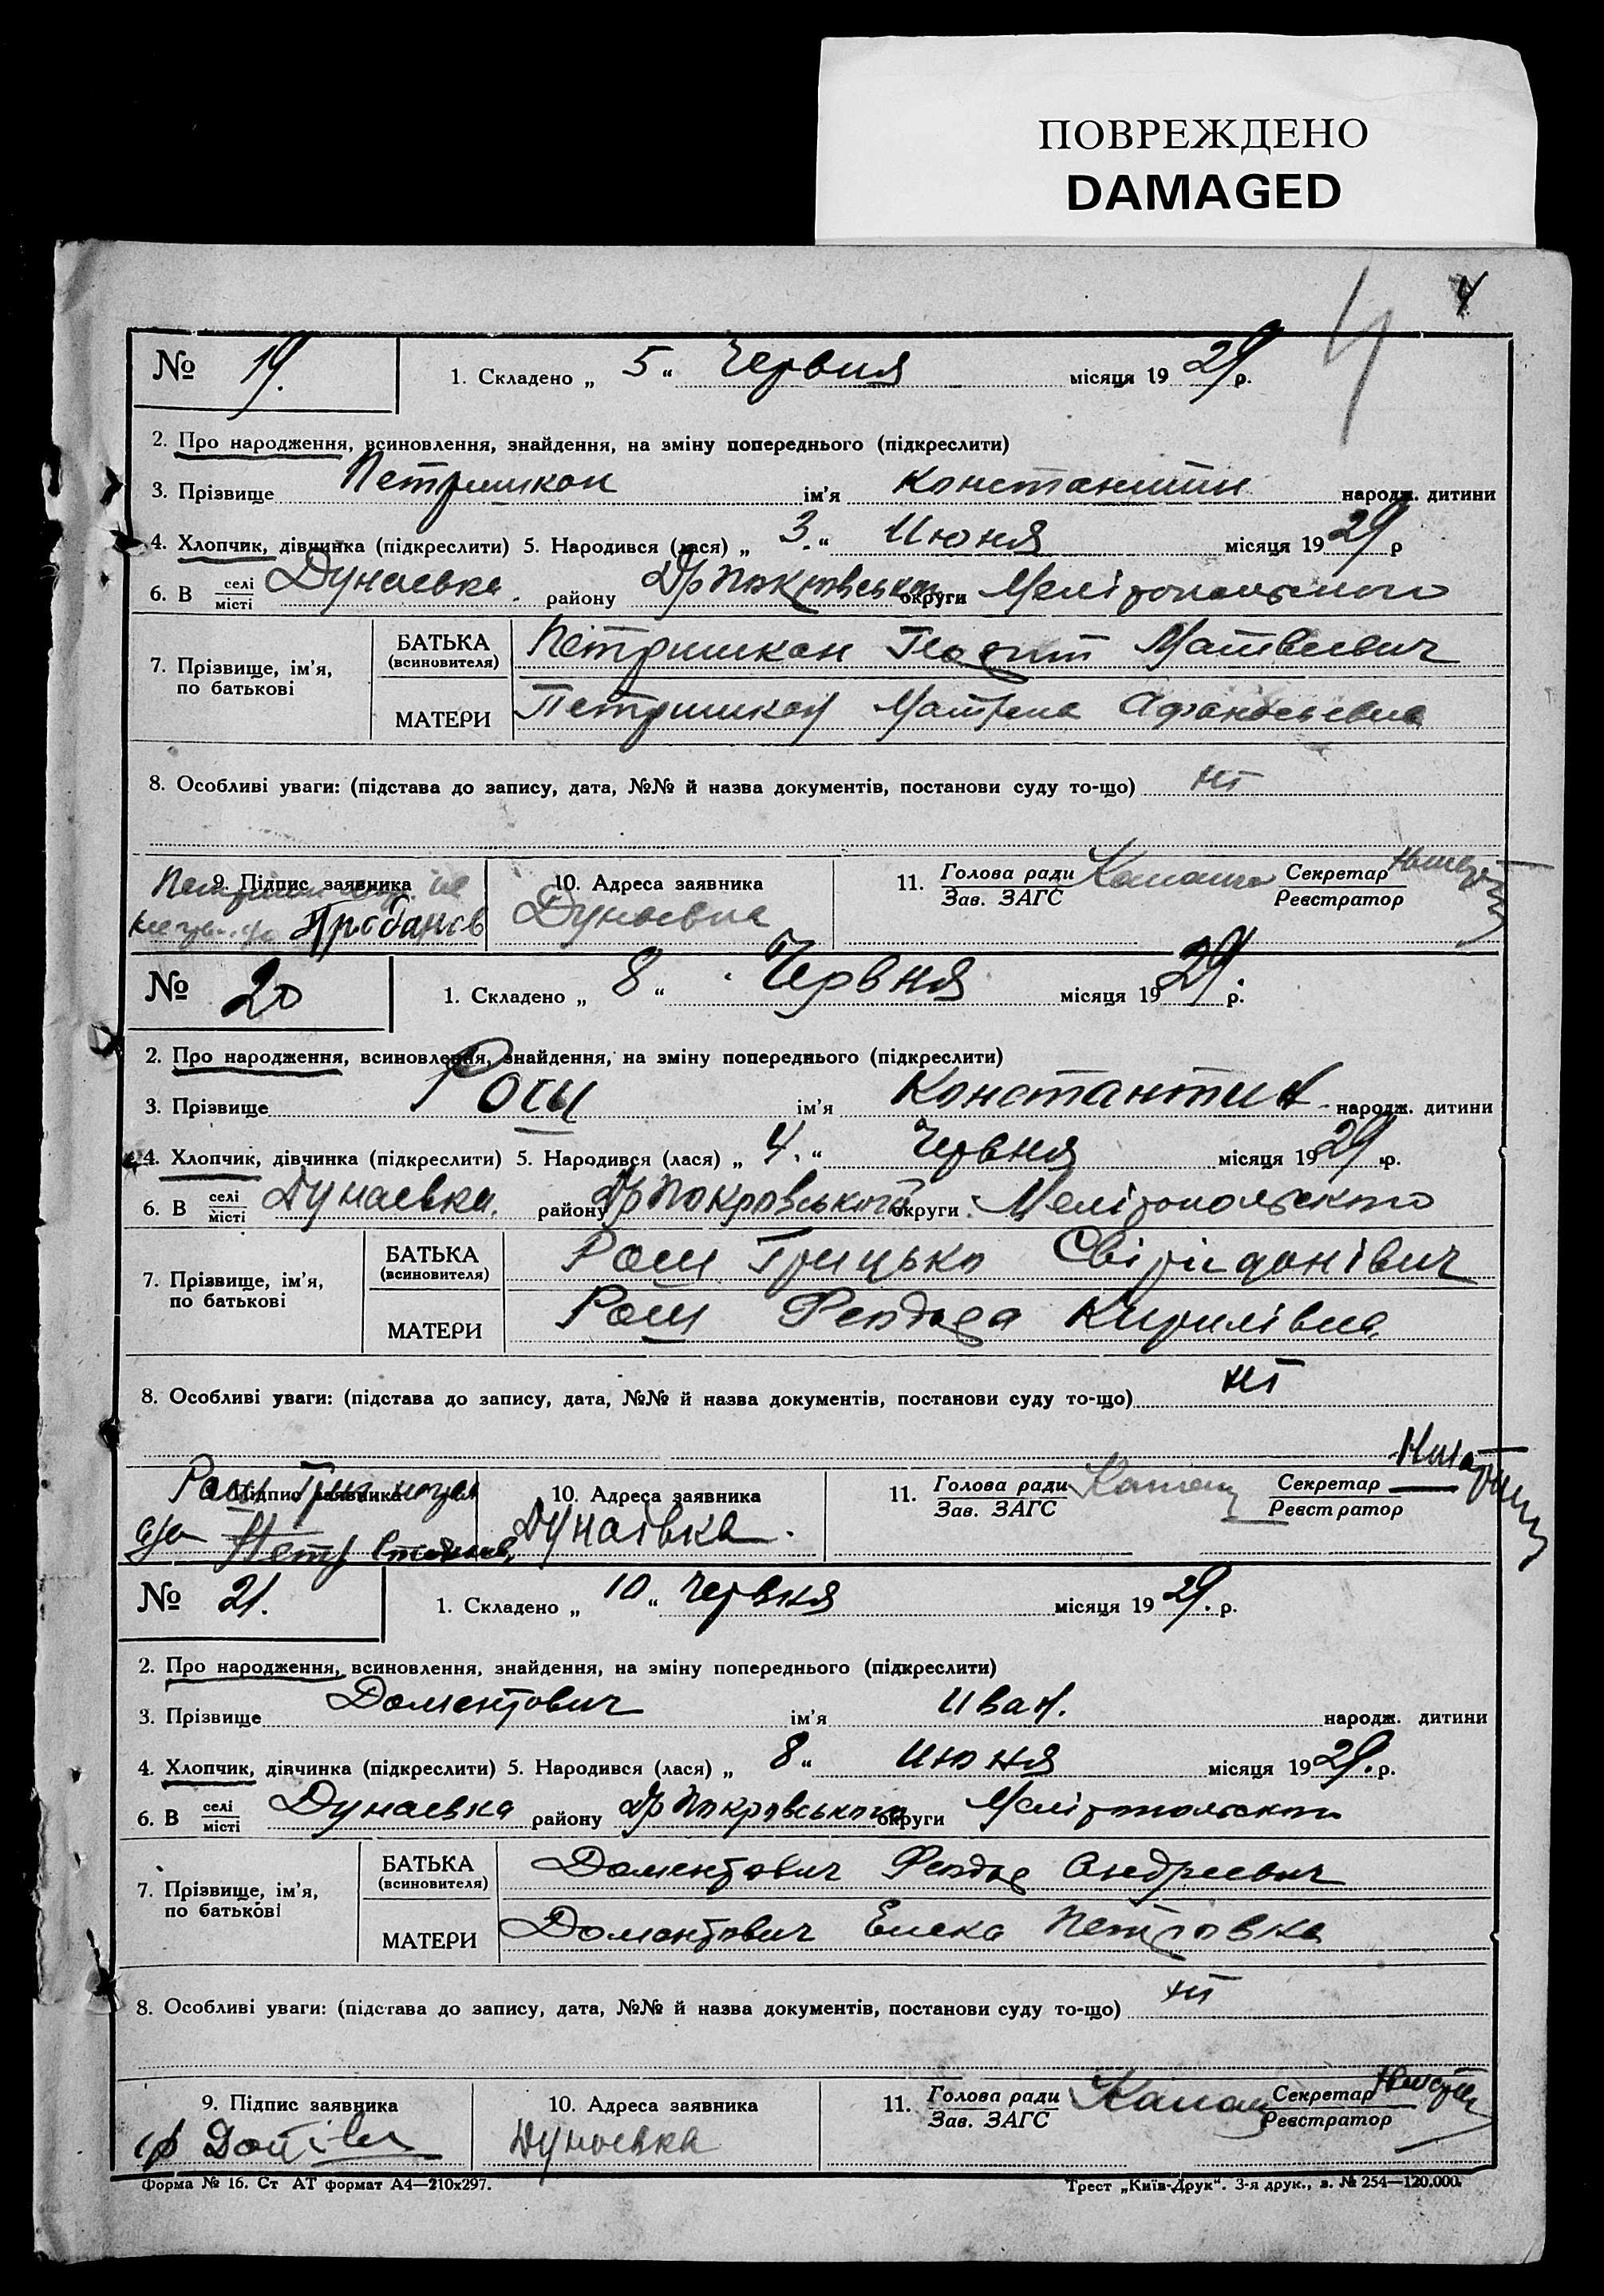 ПОВРЕЖДЕНО
DAMAGED
4
4
№ 19. 1. Складено „ 5 “ Червня місяця 19 29 р.
2. Про народження, всиновлення, знайдення, на зміну попереднього (підкреслити)
3. Прізвище Петришкан ім'я Константин народж. дитини
4. Хлопчик, дівчинка (підкреслити) 5. Народився (лася) „ 3. “ Июня місяця 19 29 р
6. В селі місті Дунаевка. району округи Мелітопольского
7. Прізвище, ім'я, по батькові
БАТЬКА (всиновителя) Петришкан Матвеевич
МАТЕРИ Петришкан Матрена Афанасьевна
8. Особливі уваги: (підстава до запису, дата, №№ й назва документів, постанови суду то-що) ні
9. Підпис заявника 10. Адреса заявника 11. Голова ради Секретар
Зав. ЗАГС Реєстратор
Дунаевка
№ 20 1. Складено „ 8 “ Червня місяця 19 29. р.
2. Про народження, всиновлення, знайдення, на зміну попереднього (підкреслити)
3. Прізвище Рош ім'я Константин народж. дитини
4. Хлопчик, дівчинка (підкреслити) 5. Народився (лася) „ 4. “ Червня місяця 19 29 р.
6. В селі місті Дунаевка. району Др Покровського округи Мелітопольского
7. Прізвище, ім'я, по батькові
БАТЬКА (всиновителя) Рош Грицько Свірідонівич
МАТЕРИ Рош Кирилівна
8. Особливі уваги: (підстава до запису, дата, №№ й назва документів, постанови суду то-що) ні
Підпис заявника 10. Адреса заявника 11. Голова ради Секретар
Зав. ЗАГС Реєстратор
Дунаівка.
№ 21. 1. Складено „ 10 “ Червня місяця 19 29. р.
2. Про народження, всиновлення, знайдення, на зміну попереднього (підкреслити)
3. Прізвище Доментович ім'я Иван. народж. дитини
4. Хлопчик, дівчинка (підкреслити) 5. Народився (лася) „ 8 “ Июня місяця 19 29. р.
6. В селі місті Дунаевка району Др Покровського округи Мелітопольского
7. Прізвище, ім'я, по батькові
БАТЬКА (всиновителя) Доментович Андреевич
МАТЕРИ Доментович Елена Петровна
8. Особливі уваги: (підстава до запису, дата, №№ й назва документів, постанови суду то-що) ні
9. Підпис заявника 10. Адреса заявника 11. Голова ради Секретар
Зав. ЗАГС Реєстратор
Дунаевка
Форма № 16. Ст АТ формат А4—210х297. Трест „Київ-Друк“. 3-я друк., з. № 254—120.000.